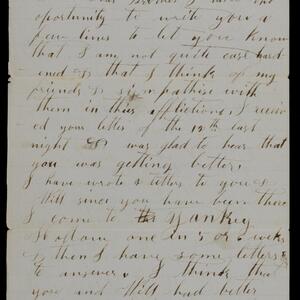 oportunity to write you a
few lines to let you know
that I am not quite case hard
ened & that I think of my
friends & simpathise with
them in thier afflictions, I receiv
ed your letter of the 12th last
night & I was glad to hear that
you was getting better,
I have wrote 2 letters to you &
Will since you have been there
I come to Yankey
one in 5 or 6 weeks
& then I have some letters
to answer, I think that
you and Will had better